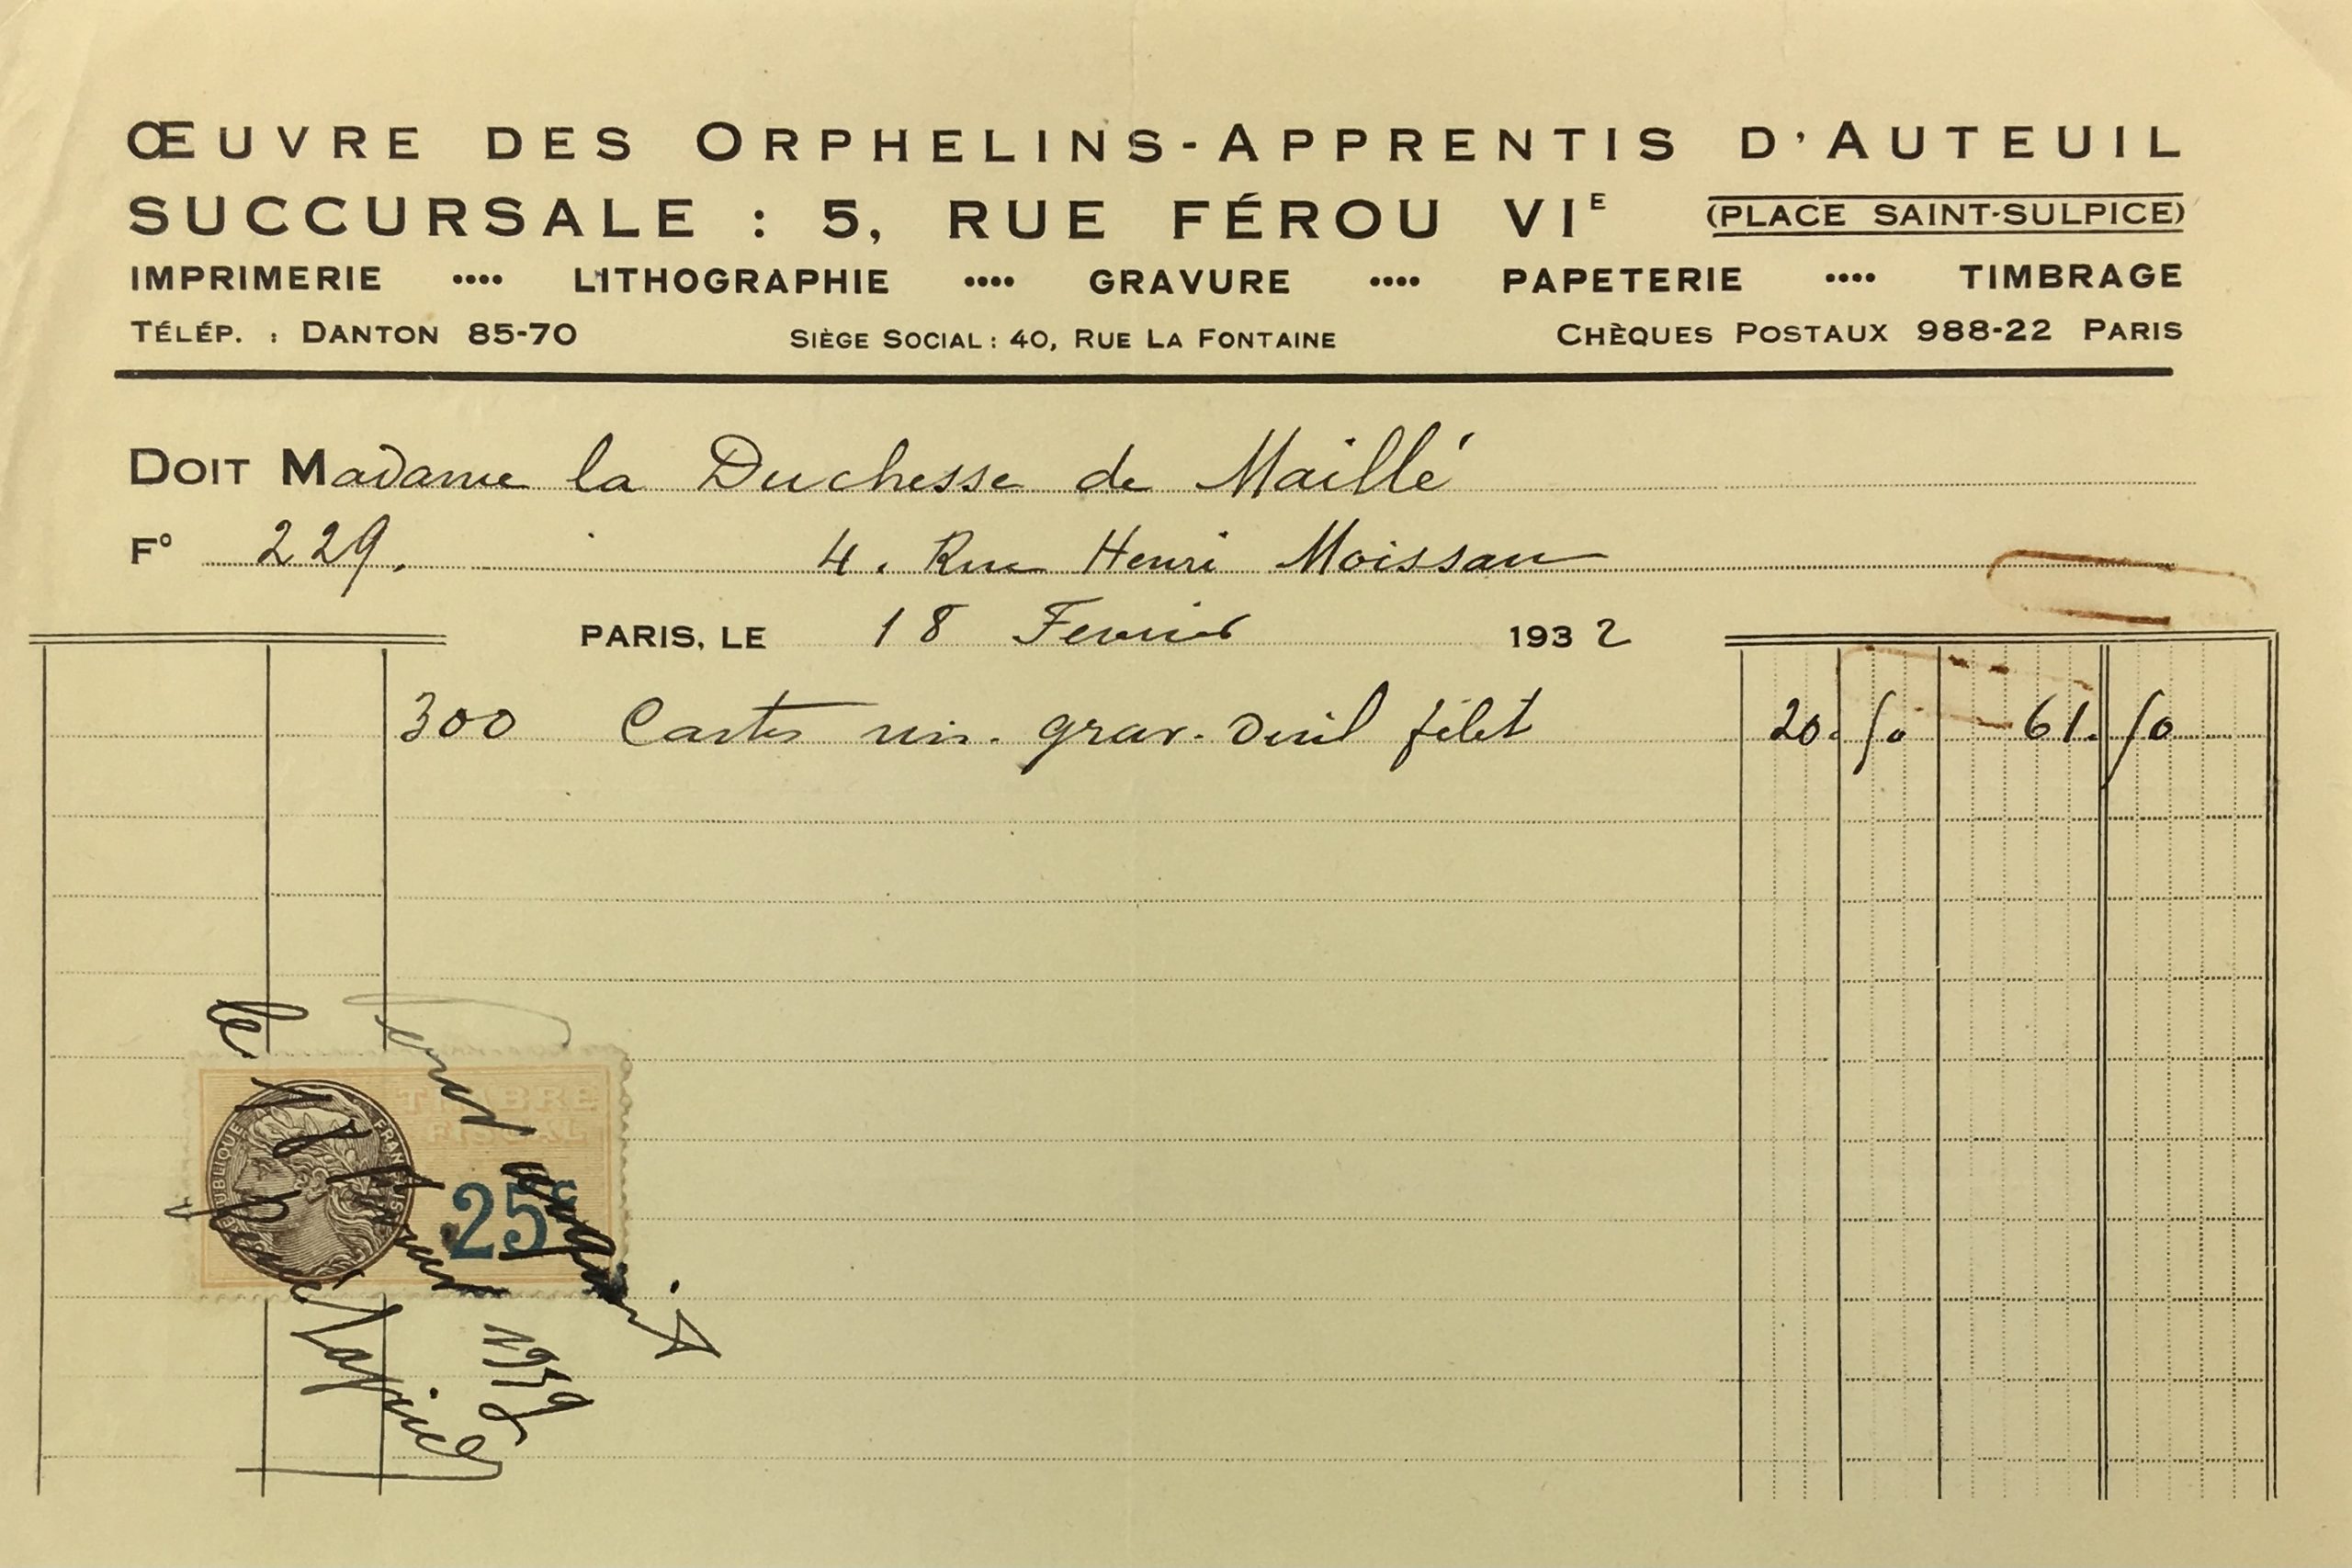 ŒUVRE DES ORPHELINS-APPRENTIS D'AUTEUIL
SUCCURSALE : 5, RUE FÉROU VIE (PLACE SAINT-SULPICE)
IMPRIMERIE •••• LITHOGRAPHIE •••• GRAVURE •••• PAPETERIE •••• TIMBRAGE
TÉLÉP. : DANTON 85-70 SIÈGE SOCIAL : 40, RUE LA FONTAINE CHÈQUES POSTAUX 988-22 PARIS
DOIT Madame la Duchesse de Maillé
F° 229. 4. Rue Henri Moissan
PARIS, LE 18 Fevrier 1932
300 Cartes vis. grav. Deuil filet 20. 50 61. 50
Pour acquit
TIMBRE
FISCAL
RÉPUBLIQUE FRANÇAISE
25c
le 1932